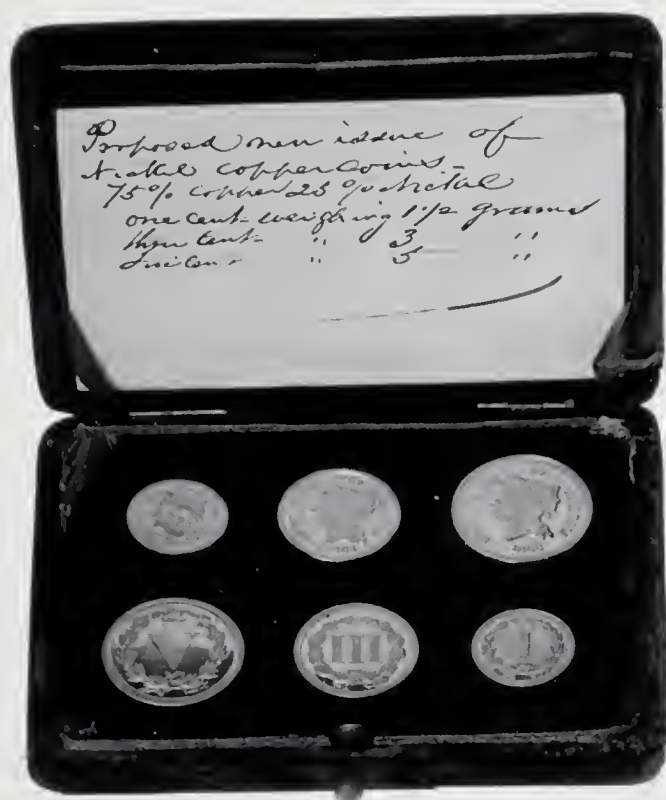 Proposed new issue of
Nickel copper Coins -
75% copper 25% Nickel
one cent - weighing 1 1/2 grams
three cent - " 3 — "
five cent - " 5 "
V
III
I